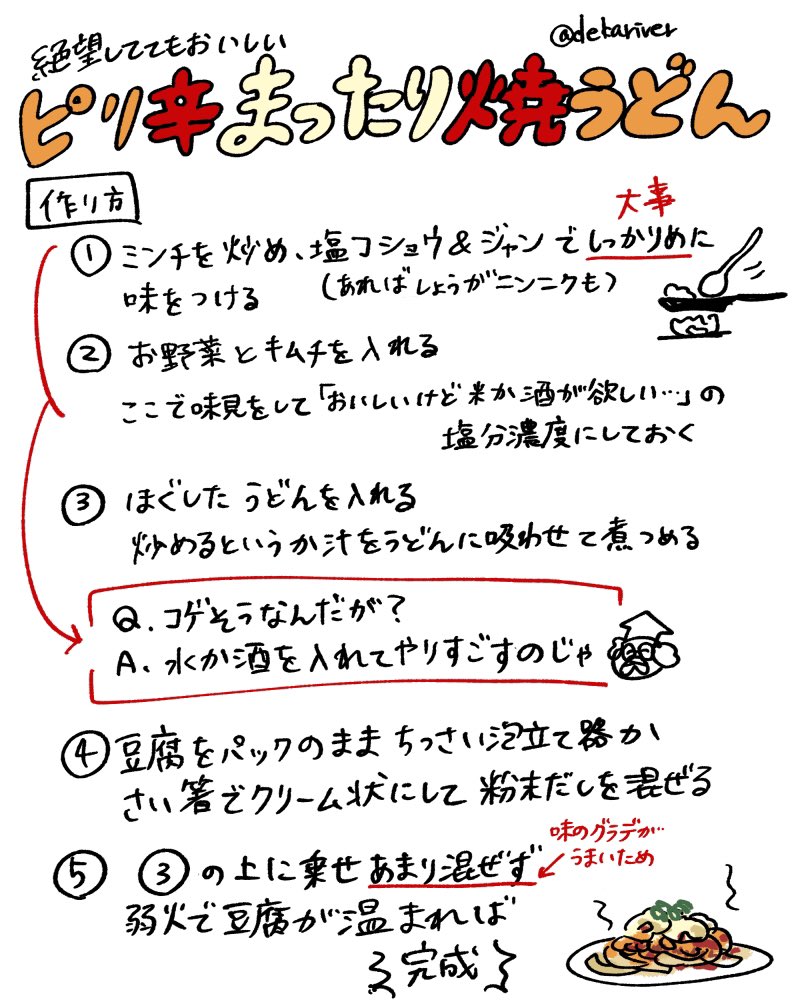 絶望しててもおいしい
@dekariver
ピリ辛まったり焼うどん
作り方
大事
① ミンチを炒め、塩コショウ&ジャンでしっかりめに
味をつける (あればしょうがニンニクも)
② お野菜とキムチを入れる
ここで味見をして「おいしいけど米か酒が欲しい…」の
塩分濃度にしておく
③ ほぐしたうどんを入れる
炒めるというか汁をうどんに吸わせて煮つめる
Q. コゲそうなんだが?
A. 水か酒を入れてやりすごすのじゃ
④ 豆腐をパックのままちっさい泡立て器か
さい箸でクリーム状にして粉末だしを混ぜる
味のグラデが
うまいため
⑤ ③の上に乗せあまり混ぜず
弱火で豆腐が温まれば
完成